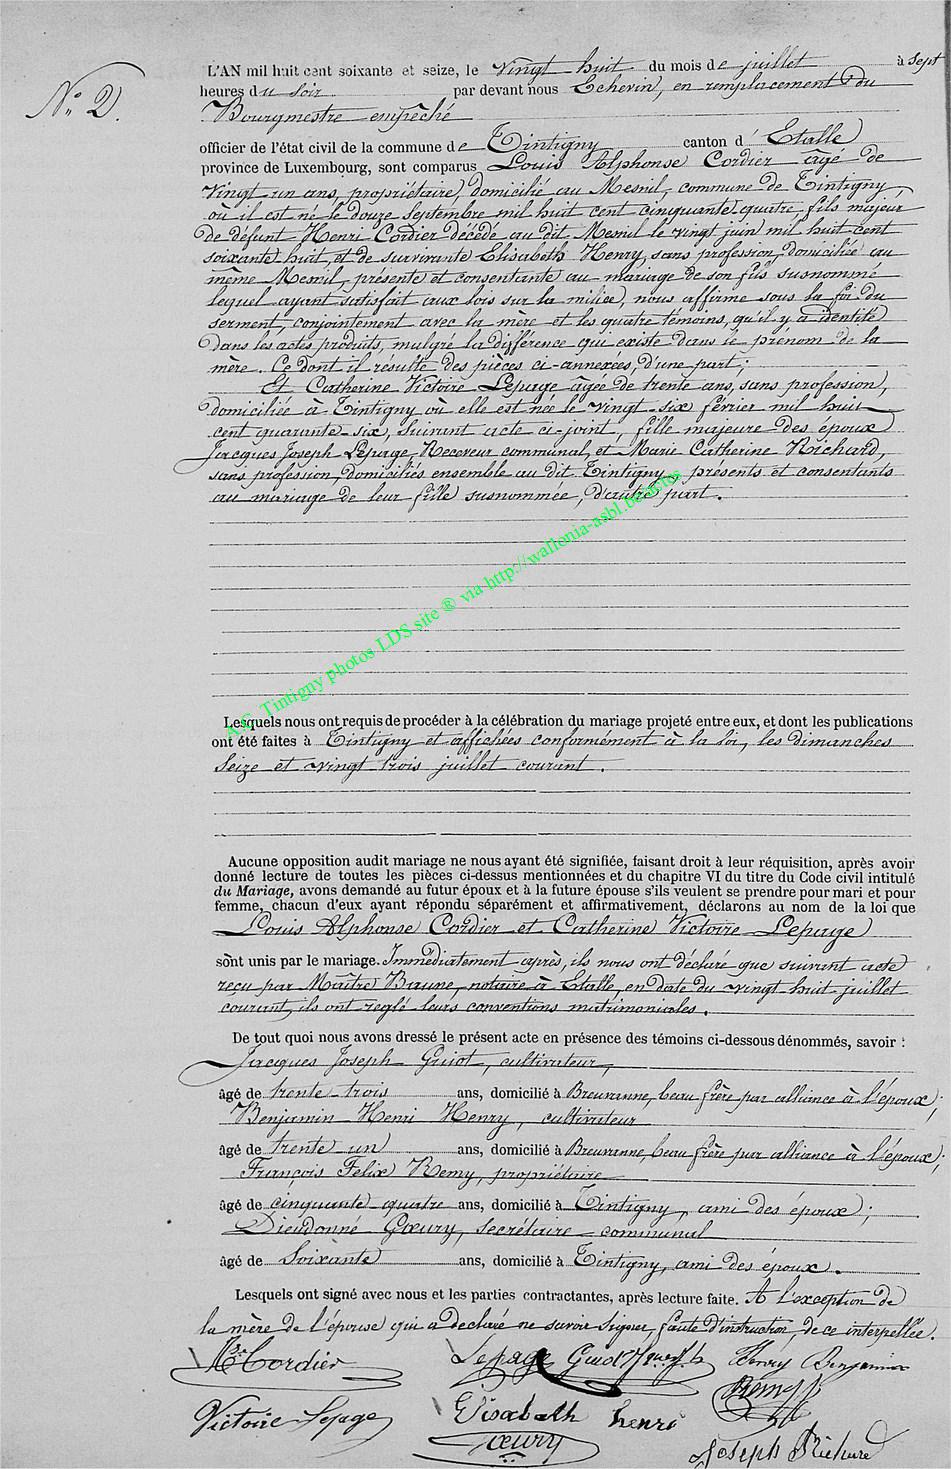 N.° 2.
L'AN mil huit cent soixante et seize, le vingt huit du mois de juillet à sept
heures du soir par devant nous Echevin, en remplacement du
Bourgmestre empêché
officier de l'état civil de la commune de Tintigny canton d' Etalle
province de Luxembourg, sont comparus Louis Alphonse Cordier âgé de
vingt-un ans, propriétaire, domicilié au Mesnil, commune de Tintigny,
où il est né le douze septembre mil huit cent cinquante-quatre, fils majeur
de défunt Henri Cordier décédé au dit Mesnil le vingt juin mil huit cent
soixante huit, et de survivante Elisabeth Henry, sans profession, domiciliée au
même Mesnil, présente et consentante au mariage de son fils susnommé
lequel ayant satisfait aux lois sur la milice, nous affirme sous la foi du
serment, conjointement avec la mère et les quatre témoins, qu'il y a identité
dans les actes produits, malgré la différence qui existe dans le prénom de la
mère. Ce dont il résulte des pièces ci-annexées, d'une part;
Et Catherine Victoire Lepage âgée de trente ans, sans profession,
domiciliée à Tintigny où elle est née le vingt-six février mil huit
cent quarante-six, suivant acte ci-joint, fille majeure des époux
Jacques Joseph Lepage, Receveur communal, et Marie Catherine Richard,
sans profession, domiciliés ensemble au dit Tintigny, présents et consentants
au mariage de leur fille susnommée, d'autre part.
A.C. Tintigny photos LDS site ® via http://wallonia-asbl.be/actes
Lesquels nous ont requis de procéder à la célébration du mariage projeté entre eux, et dont les publications
ont été faites à Tintigny et affichées conformément à la loi, les dimanches
seize et vingt trois juillet courant.
Aucune opposition audit mariage ne nous ayant été signifiée, faisant droit à leur réquisition, après avoir
donné lecture de toutes les pièces ci-dessus mentionnées et du chapitre VI du titre du Code civil intitulé
du Mariage, avons demandé au futur époux et à la future épouse s'ils veulent se prendre pour mari et pour
femme, chacun d'eux ayant répondu séparément et affirmativement, déclarons au nom de la loi que
Louis Alphonse Cordier et Catherine Victoire Lepage
sont unis par le mariage. Immédiatement après, ils nous ont déclaré que suivant acte
reçu par Maître Baune, notaire à Etalle, en date du vingt-huit juillet
courant, ils ont réglé leurs conventions matrimoniales.
De tout quoi nous avons dressé le présent acte en présence des témoins ci-dessous dénommés, savoir :
Jacques Joseph Guiot, cultivateur,
âgé de trente-trois ans, domicilié à Breuvanne, beau frère par alliance à l'époux;
Benjamin Henri Henry, cultivateur
âgé de trente un ans, domicilié à Breuvanne, beau frère par alliance à l'époux;
François Félix Remy, propriétaire
âgé de cinquante quatre ans, domicilié à Tintigny, ami des époux;
Dieudonné Goeury, secrétaire communal
âgé de Soixante ans, domicilié à Tintigny, ami des époux.
Lesquels ont signé avec nous et les parties contractantes, après lecture faite. A l'exception de
la mère de l'épouse qui a déclaré ne savoir signer, faute d'instruction, de ce interpellée.
Cordier Lepage Henry Benjamin
Remy
Victoire Lepage Elisabeth henri
Goeury
Joseph Richard